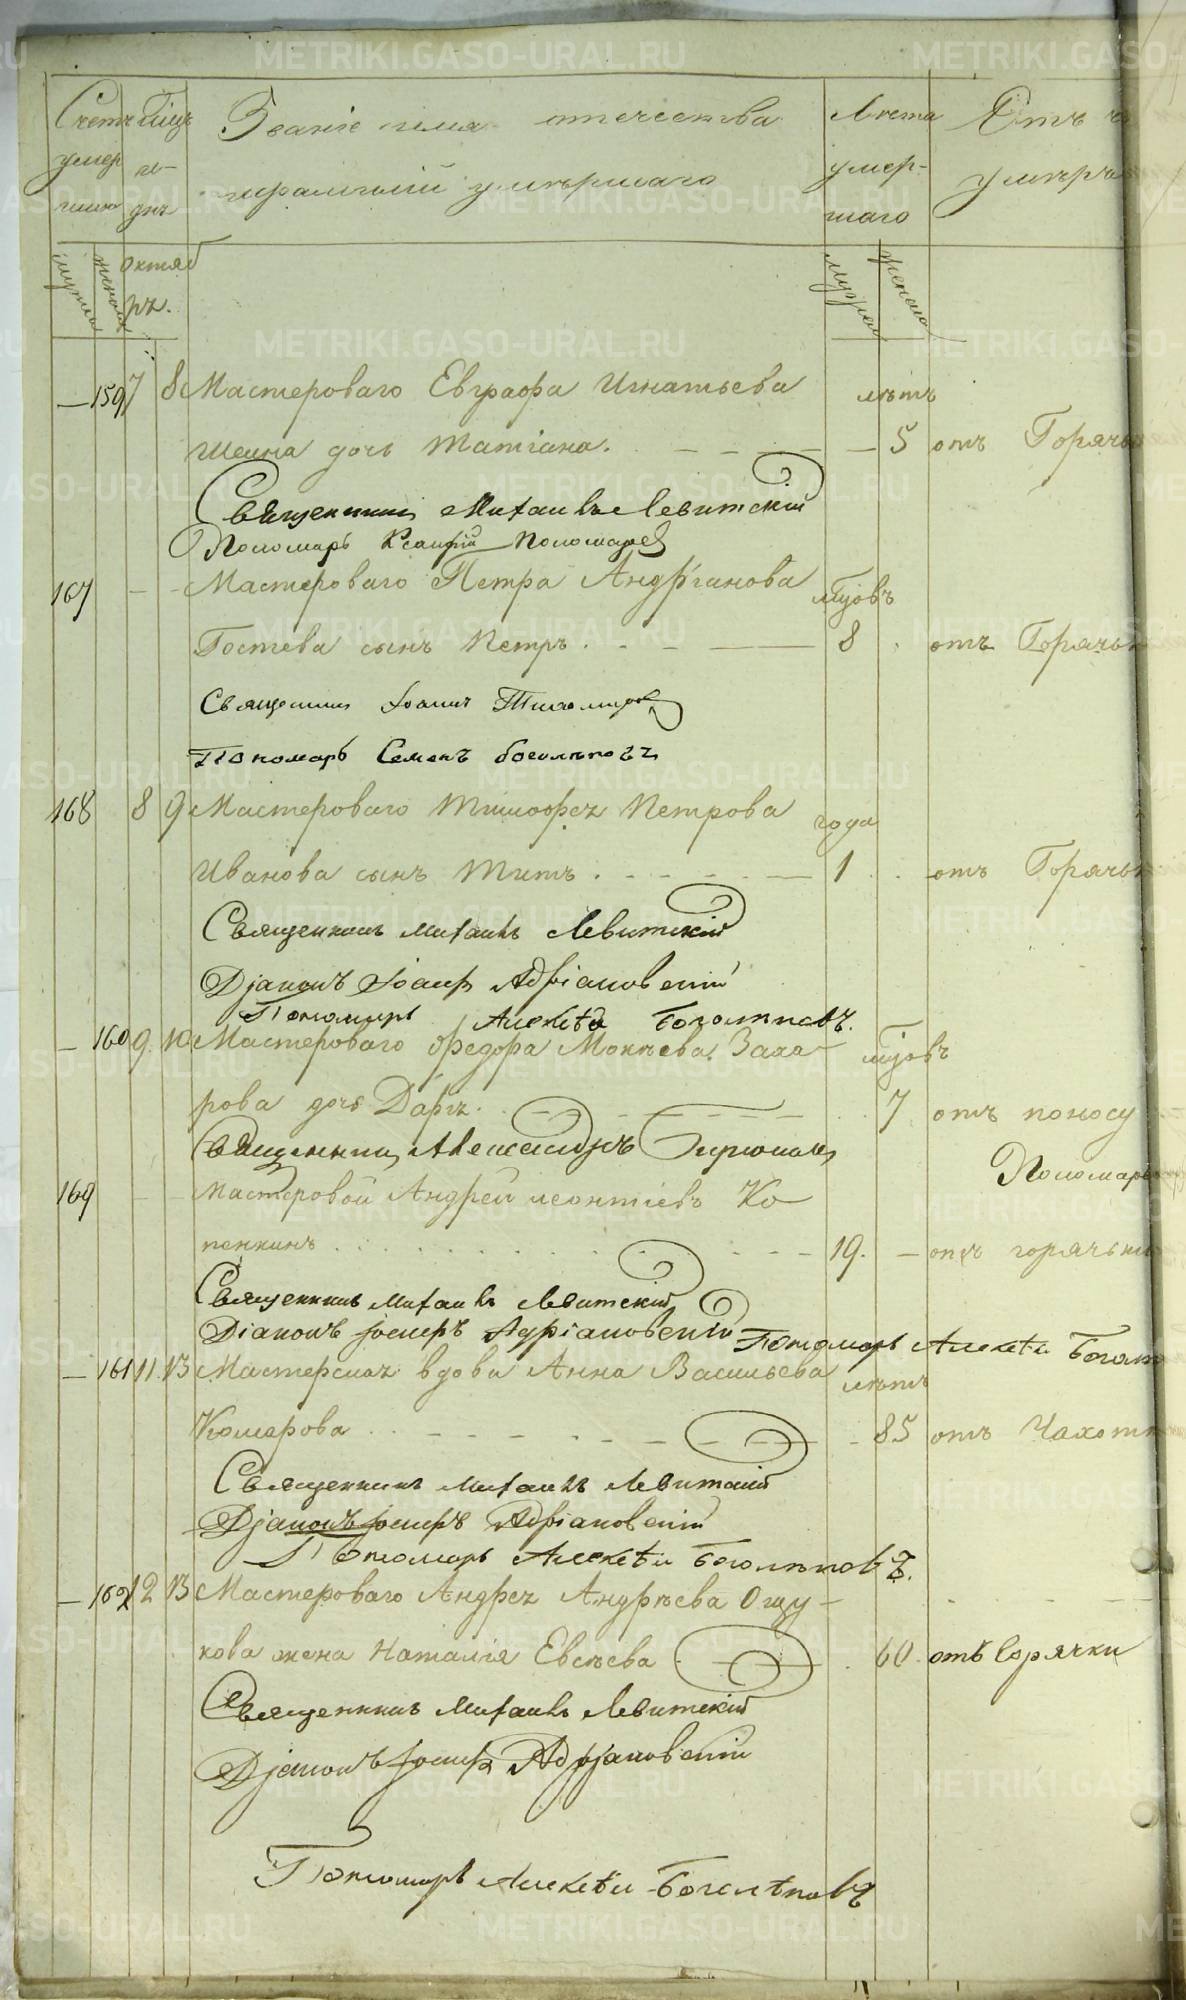 Счетъ умер шихъ
Мцъ и днь
Званіе имя отчества
и фамилій умершаго
Лѣта умер- шаго
Отъ ч
умеръ
мужска женска
Октяб рь.
мужска женска
— 159 7 8 Мастероваго Евграфа Игнатьева лѣтъ
Шеина дочь Татіана. — — — — 5 отъ Горячк
Священникъ Михаилъ Левитскій
Пономарь Пономаревъ
167 — - Мастероваго Петра Андріанова
Гостева сынъ Петръ. - - — 8 отъ Горячк
Священникъ Іоаннъ Тихомировъ
Пономарь Семенъ Боголѣповъ
168 8 9 Мастероваго Тимофея Петрова года
Иванова сынъ Титъ. - - - - — 1 отъ Горячк
Священникъ Михаилъ Левитскій
Діаконъ Іосифъ Адріановскій
Пономарь Алексѣй Боголѣповъ.
— 160 9 10 Мастероваго Ѳедора Мокѣева Заха-
рова дочь Дарья. - - - - - 7 отъ поносу
Священникъ Александръ
Пономарь
169 — - Мастеровой Андрей Леонтіевъ Ко-
пенкинъ . . . . . . — — — 19. — отъ горячки
Священникъ Михаилъ Левитскій
Діаконъ Іосифъ Адріановскій Пономарь Алексѣй Богол
— 161 11 13 Мастерская вдова Анна Васильева лѣтъ
Комарова . . - - - - - - - 85 отъ Чахотк
Священникъ Михаилъ Левитскій
Діаконъ Іосифъ Адріановскій
Пономарь Алексѣй Боголѣповъ.
— 162 12 13 Мастероваго Андрея Андрѣева Ощу-
кова жена Наталія Евсѣева - — . 60. отъ Горячки
Священникъ Михаилъ Левитскій
Діаконъ Іосифъ Адріановскій
Пономарь Алексѣй Боголѣповъ